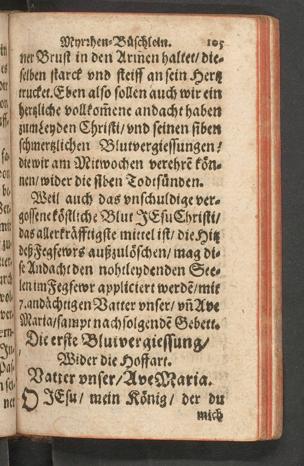 Myrrhen-Büschlein. 105
ner Brust in den Armen haltet/ die-
selben starck vnd steiff an sein Hertz
trucket. Eben also sollen auch wir ein
hertzliche vollkom̃ene andacht haben
zum Leyden Christi/ vnd seinen siben
schmertzlichen Blutvergiessungen/
die wir am Mitwochen verehrẽ kön-
nen/ wider die siben Todtsünden.
Weil auch das vnschuldige ver-
gossene köstliche Blut JEsu Christi/
das allerkräfftigste mittel ist/ die Hitz
deß Fegfewrs außzulöschen/ mag di-
se Andacht den nohtleydenden See-
len im Fegfewr appliciert werdẽ/ mit
7. andächtigen Vatter vnser/ vñ Ave
Maria/ sampt nachfolgendẽ Gebett.
Die erste Blutvergiessung/
Wider die Hoffart.
Vatter vnser/ Ave Maria.
O JEsu/ mein König/ der du
mich